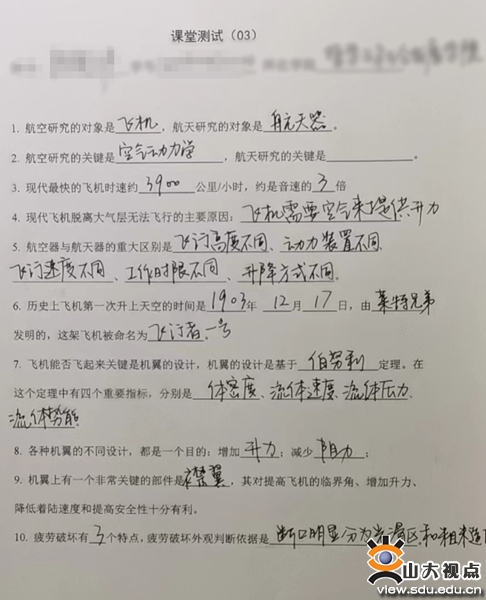 课堂测试（03）
1. 航空研究的对象是飞机，航天研究的对象是航天器。
2. 航空研究的关键是空气动力学，航天研究的关键是。
3. 现代最快的飞机时速约3900公里/小时，约是音速的3倍
4. 现代飞机脱离大气层无法飞行的主要原因：飞机需要空气来提供升力
5. 航空器与航天器的重大区别是飞行高度不同、动力装置不同、
飞行速度不同、工作时限不同、升降方式不同.
6. 历史上飞机第一次升上天空的时间是1903年12月17日，由莱特兄弟
发明的，这架飞机被命名为飞行者一号
7. 飞机能否飞起来关键是机翼的设计，机翼的设计是基于伯努利定理。在
这个定理中有四个重要指标，分别是体密度、流体速度、流体压力、
流体势能
8. 各种机翼的不同设计，都是一个目的：增加升力；减少阻力；
9. 机翼上有一个非常关键的部件是襟翼，其对提高飞机的临界角、增加升力、
降低着陆速度和提高安全性十分有利。
10. 疲劳破坏有3个特点，疲劳破坏外观判断依据是断口明显分为光滑区和粗糙
山大视点
www.view.sdu.edu.cn